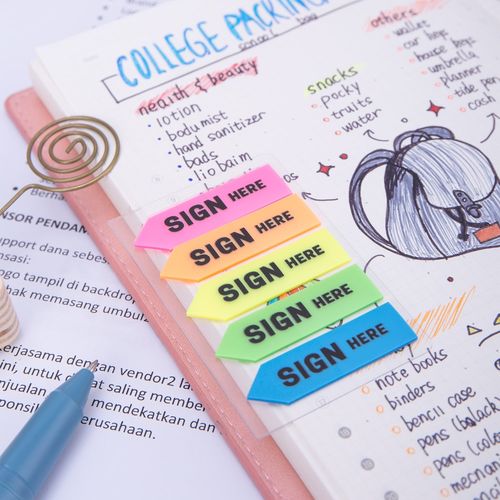 COLLEGE PACKING
school bag
health & beauty
lotion
body mist
hand sanitizer
pads
lip balm
snacks
pocky
fruits
water
others
wallet
car keys
house keys
umbrella
planner
tide pen
cash
SIGN HERE
SIGN HERE
SIGN HERE
SIGN HERE
SIGN HERE
note books
binders
pencil case
pens (black
pens (colo
mechani
Berha
NSOR PENDAM
upport dana sebes
nsasi:
ogo tampil di backdrop
hak memasang umbul
Kerjasama dengan vendor2 la
ini, untuk dapat saling member
njualan
mendekatkan dan
ponsib
erusahaan.